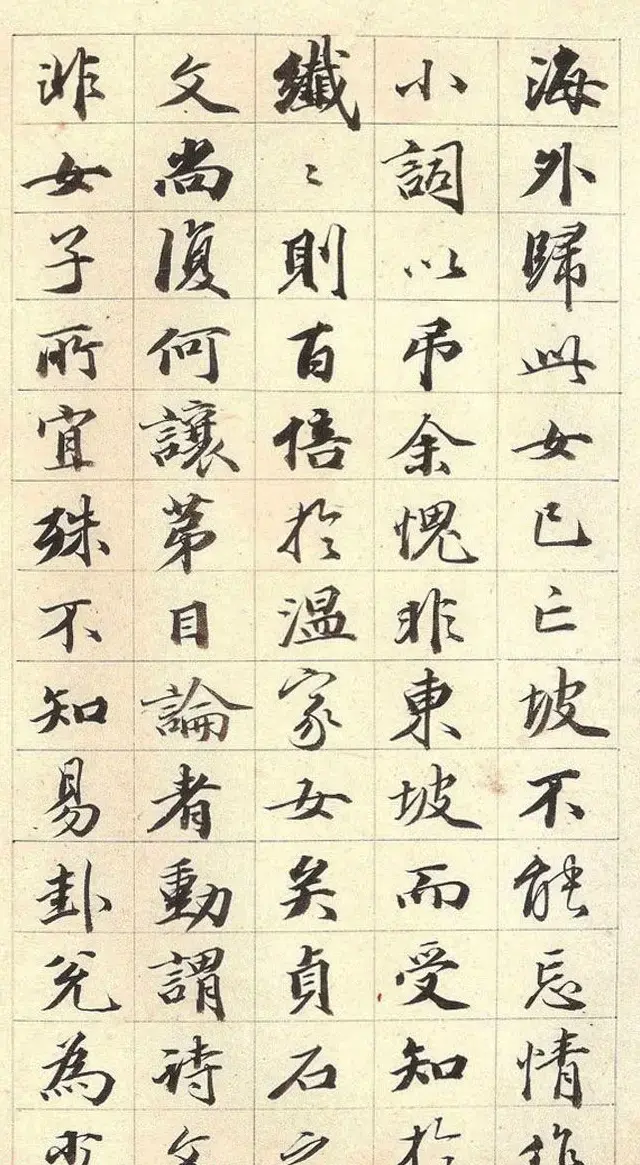 海外歸此女已亡坡不能忘情作
小詞以弔余愧非東坡而受知於
纖〻則百倍於溫家女矣貞石之
文尚復何讓第目論者動謂詩文
非女子所宜殊不知易卦兌為少